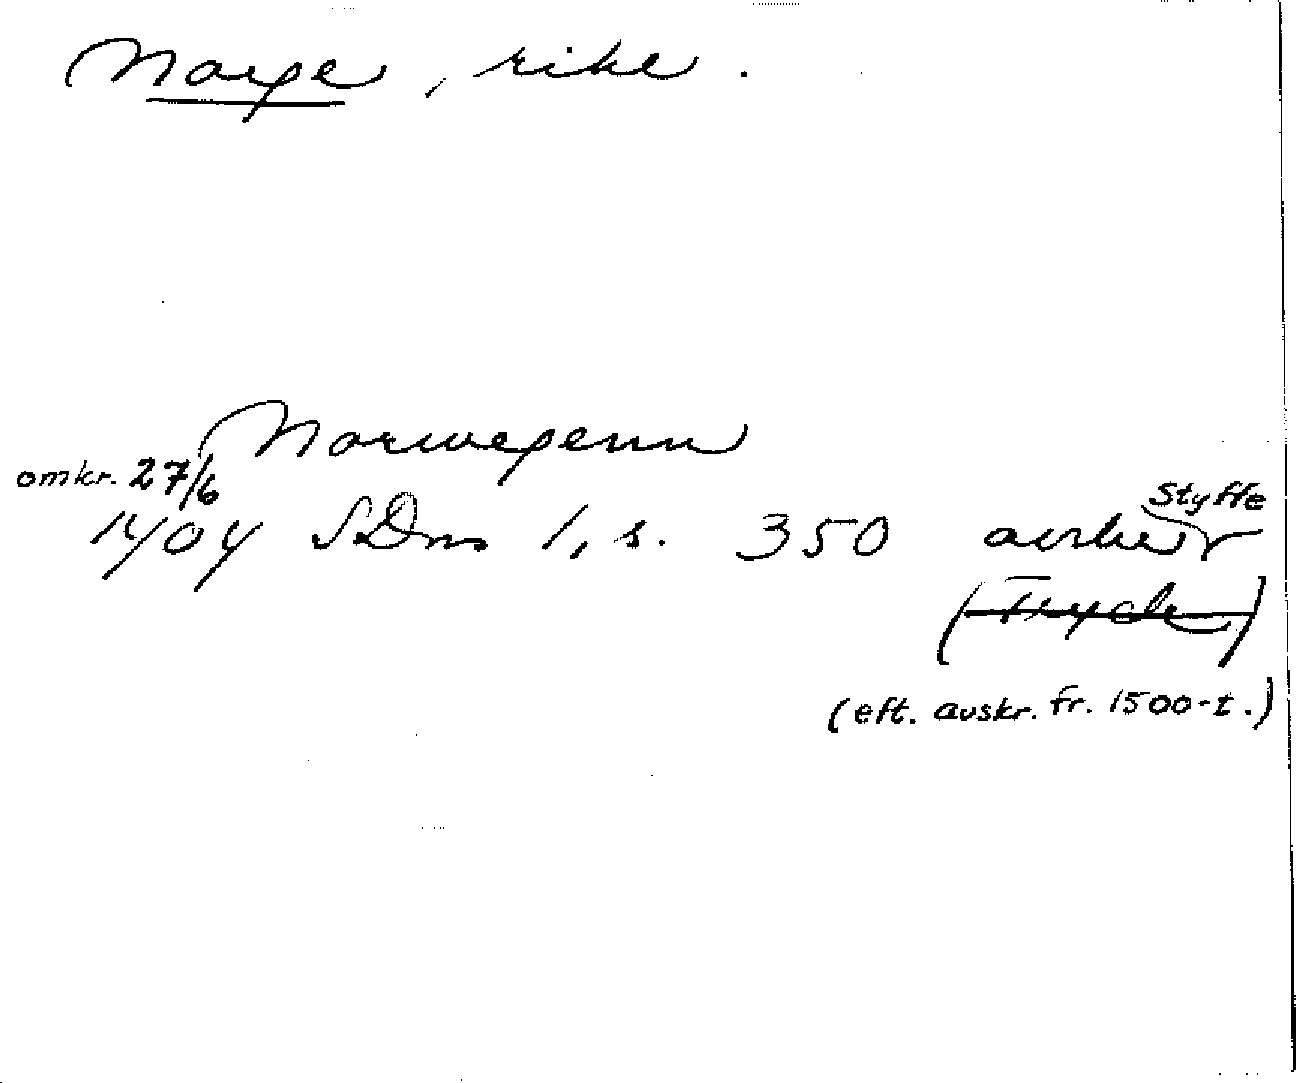 Norge, rike.
Norwegenn
omkr. 27/6
1404 SDns 1, s. 350 avskr Styffe
(Tryck)
(eft. avskr. fr. 1500-t.)